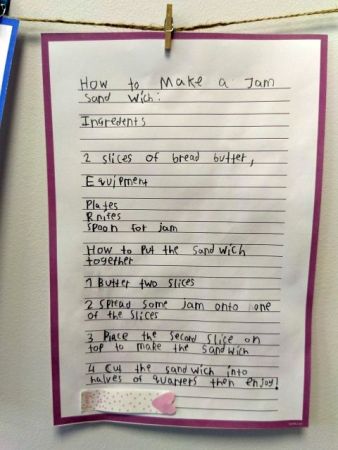 How to Make a Jam
Sand wich:
Ingredents
2 slices of bread butter,
Equipment
Plates
Knifes
Spoon for jam
How to Put the Sand wich
together
1 Butter two slices
2 Spread Some Jam onto one
of the Slices
3 Place the Second Slice on
top to make the Sandwich
4 Cut the sandwich into
halves of quarters then enjoy!